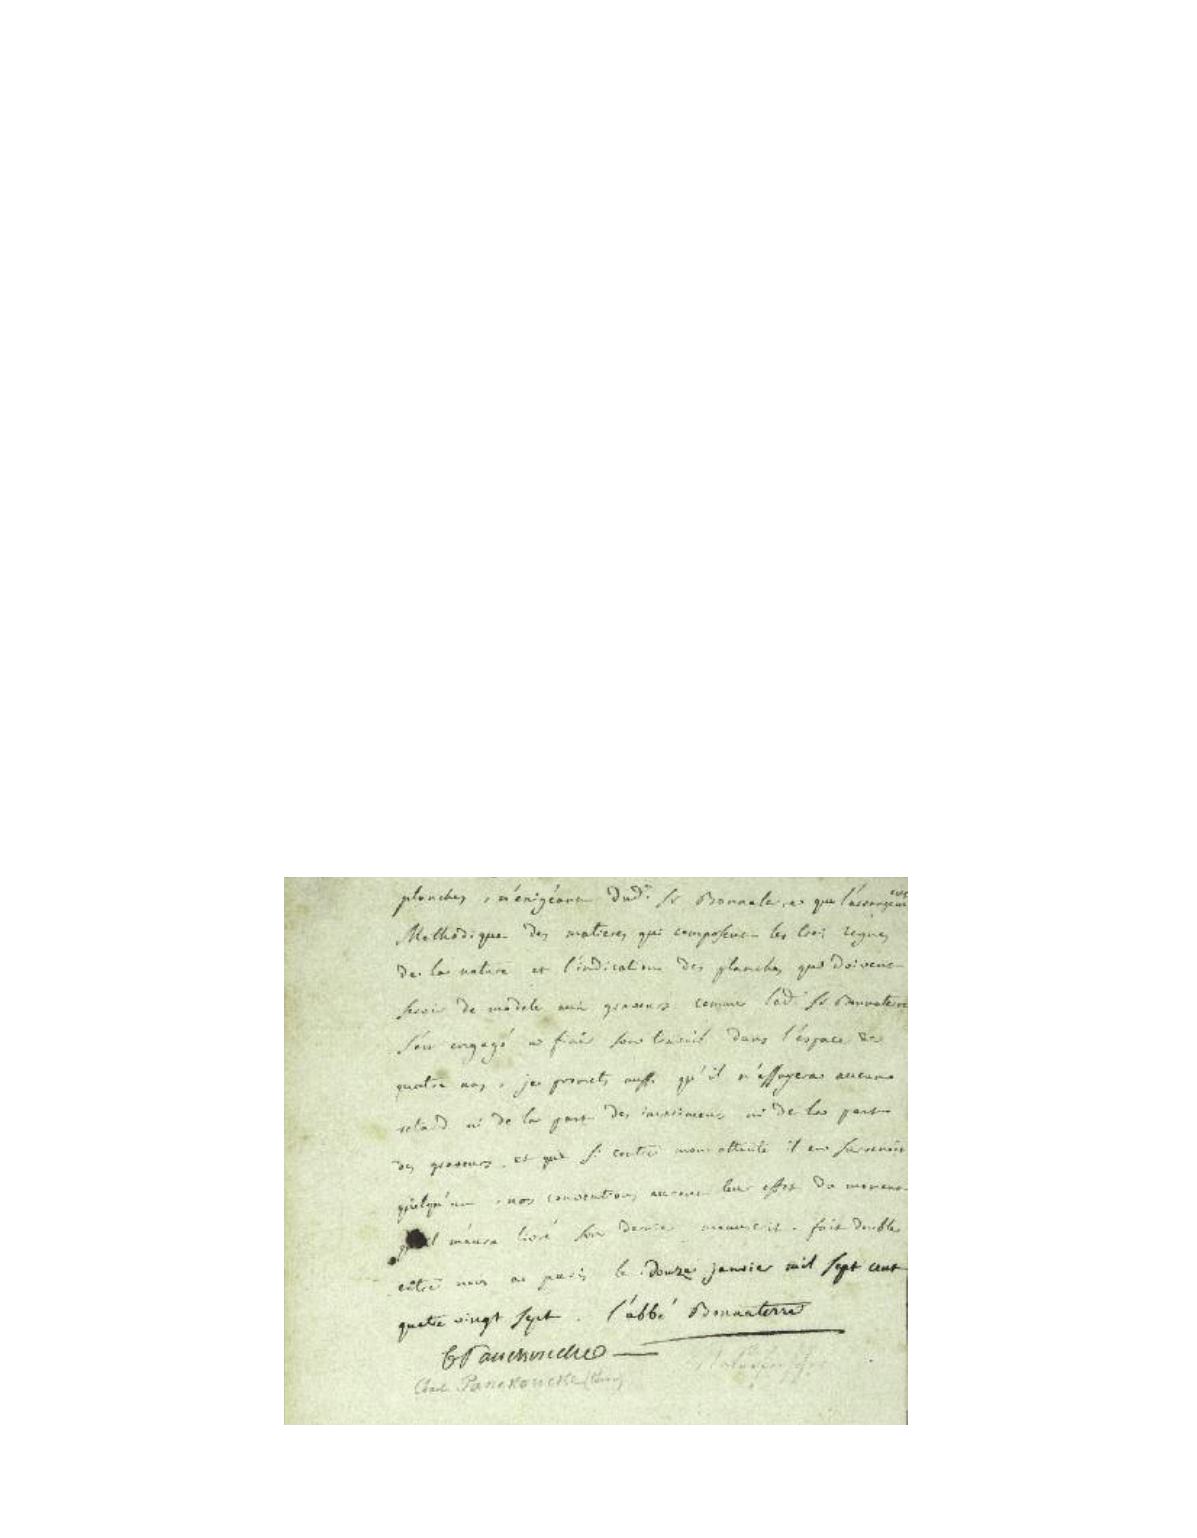 planches, n'éxigéant dud. Sr Bonnaterre que l'arrangement
Methodique des matieres qui composent les trois regnes
de la nature et l'indication des planches qui doivent
servir de modele aux graveurs comme led. Sr Bonnaterre
s'en engagé a finir son travail dans l'espace de
quatre ans, je promets aussi qu'il n'essuyera aucun
retard ni de la part des imprimeurs ni de la part
des graveurs, et que si contre mon attente il en survenoit
quelqu'un, nos conventions auront leur effet du moment
qu'il m'aura livré son dernier manuscrit. fait double
entre nous a paris le douze janvier mil sept cent
quatre vingt sept. l'abbé Bonnaterre
CPanckoucke
Panckoucke